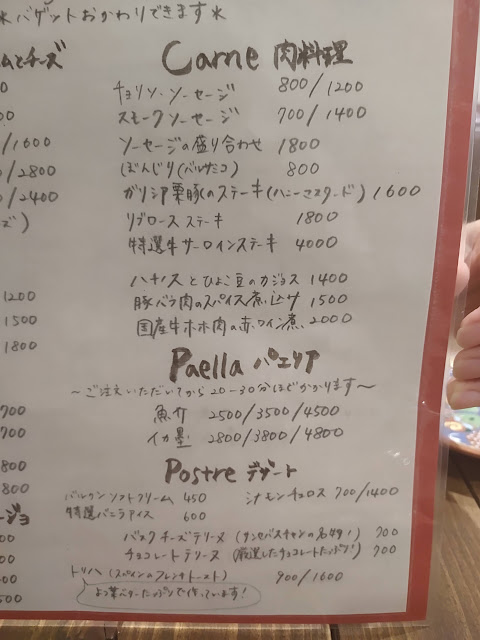 *バゲットおかわりできます*
ムとチーズ
00
/1600
/2800
/2400
ズ)
1200
1500
1800
700
700
800
800
ージョ
00
00
500
Carne 肉料理
チョリソーソーセージ 800/1200
スモークソーセージ 700/1400
ソーセージの盛り合わせ 1800
ぼんじり(バルサミコ) 800
ガリシア栗豚のステーキ(ハニーマスタード) 1600
リブロースステーキ 1800
特選牛サーロインステーキ 4000
ハチノスとひよこ豆のカジョス 1400
豚バラ肉のスパイス煮込み 1500
国産牛ホホ肉の赤ワイン煮 2000
Paella パエリア
~ご注文いただいてから20-30分ほどかかります~
魚介 2500/3500/4500
イカ墨 2800/3800/4800
Postre デザート
バルクンソフトクリーム 450 シナモンチュロス 700/1400
特選バニラアイス 600
バスクチーズテリーヌ (サンセバスチャンの名物!) 700
チョコレートテリーヌ (厳選したチョコレートたっぷり!) 700
トリハ (スペインのフレンチトースト) 900/1600